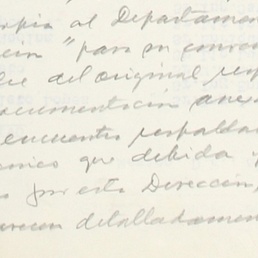 copia al Departamen
ción "para su conoci
del original resp
documentación anex
encuentra respalda
único que debida y
por esta Dirección,
detalladamen